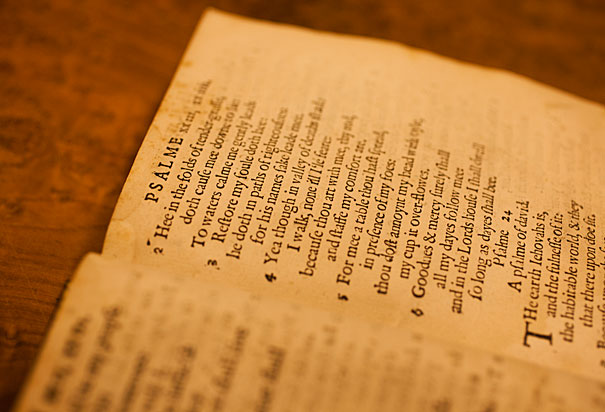 PSALME xxiii, xxiiii,
2 Hee in the folds of tender-graſſe,
doth cauſe mee downe to lie:
To waters calme me gently leads
3 Reſtore my ſoule doth hee:
he doth in paths of righteouſnes:
for his names ſake leade mee.
4 Yea though in valley of deaths ſhade
I walk, none ill I'le feare:
becauſe thou art with mee, thy rod,
and ſtaffe my comfort are.
5 For mee a table thou haſt ſpread,
in preſence of my foes:
thou doſt annoynt my head with oyle,
my cup it over-flowes.
6 Goodnes & mercy ſurely ſhall
all my dayes follow mee:
and in the Lords houſe I ſhall dwell
ſo long as dayes ſhall bee.
Pſalme 24
A pſalme of david.
THe earth Iehovahs is,
and the fulneſſe of it:
the habitable world, & they
that there upon doe ſit.